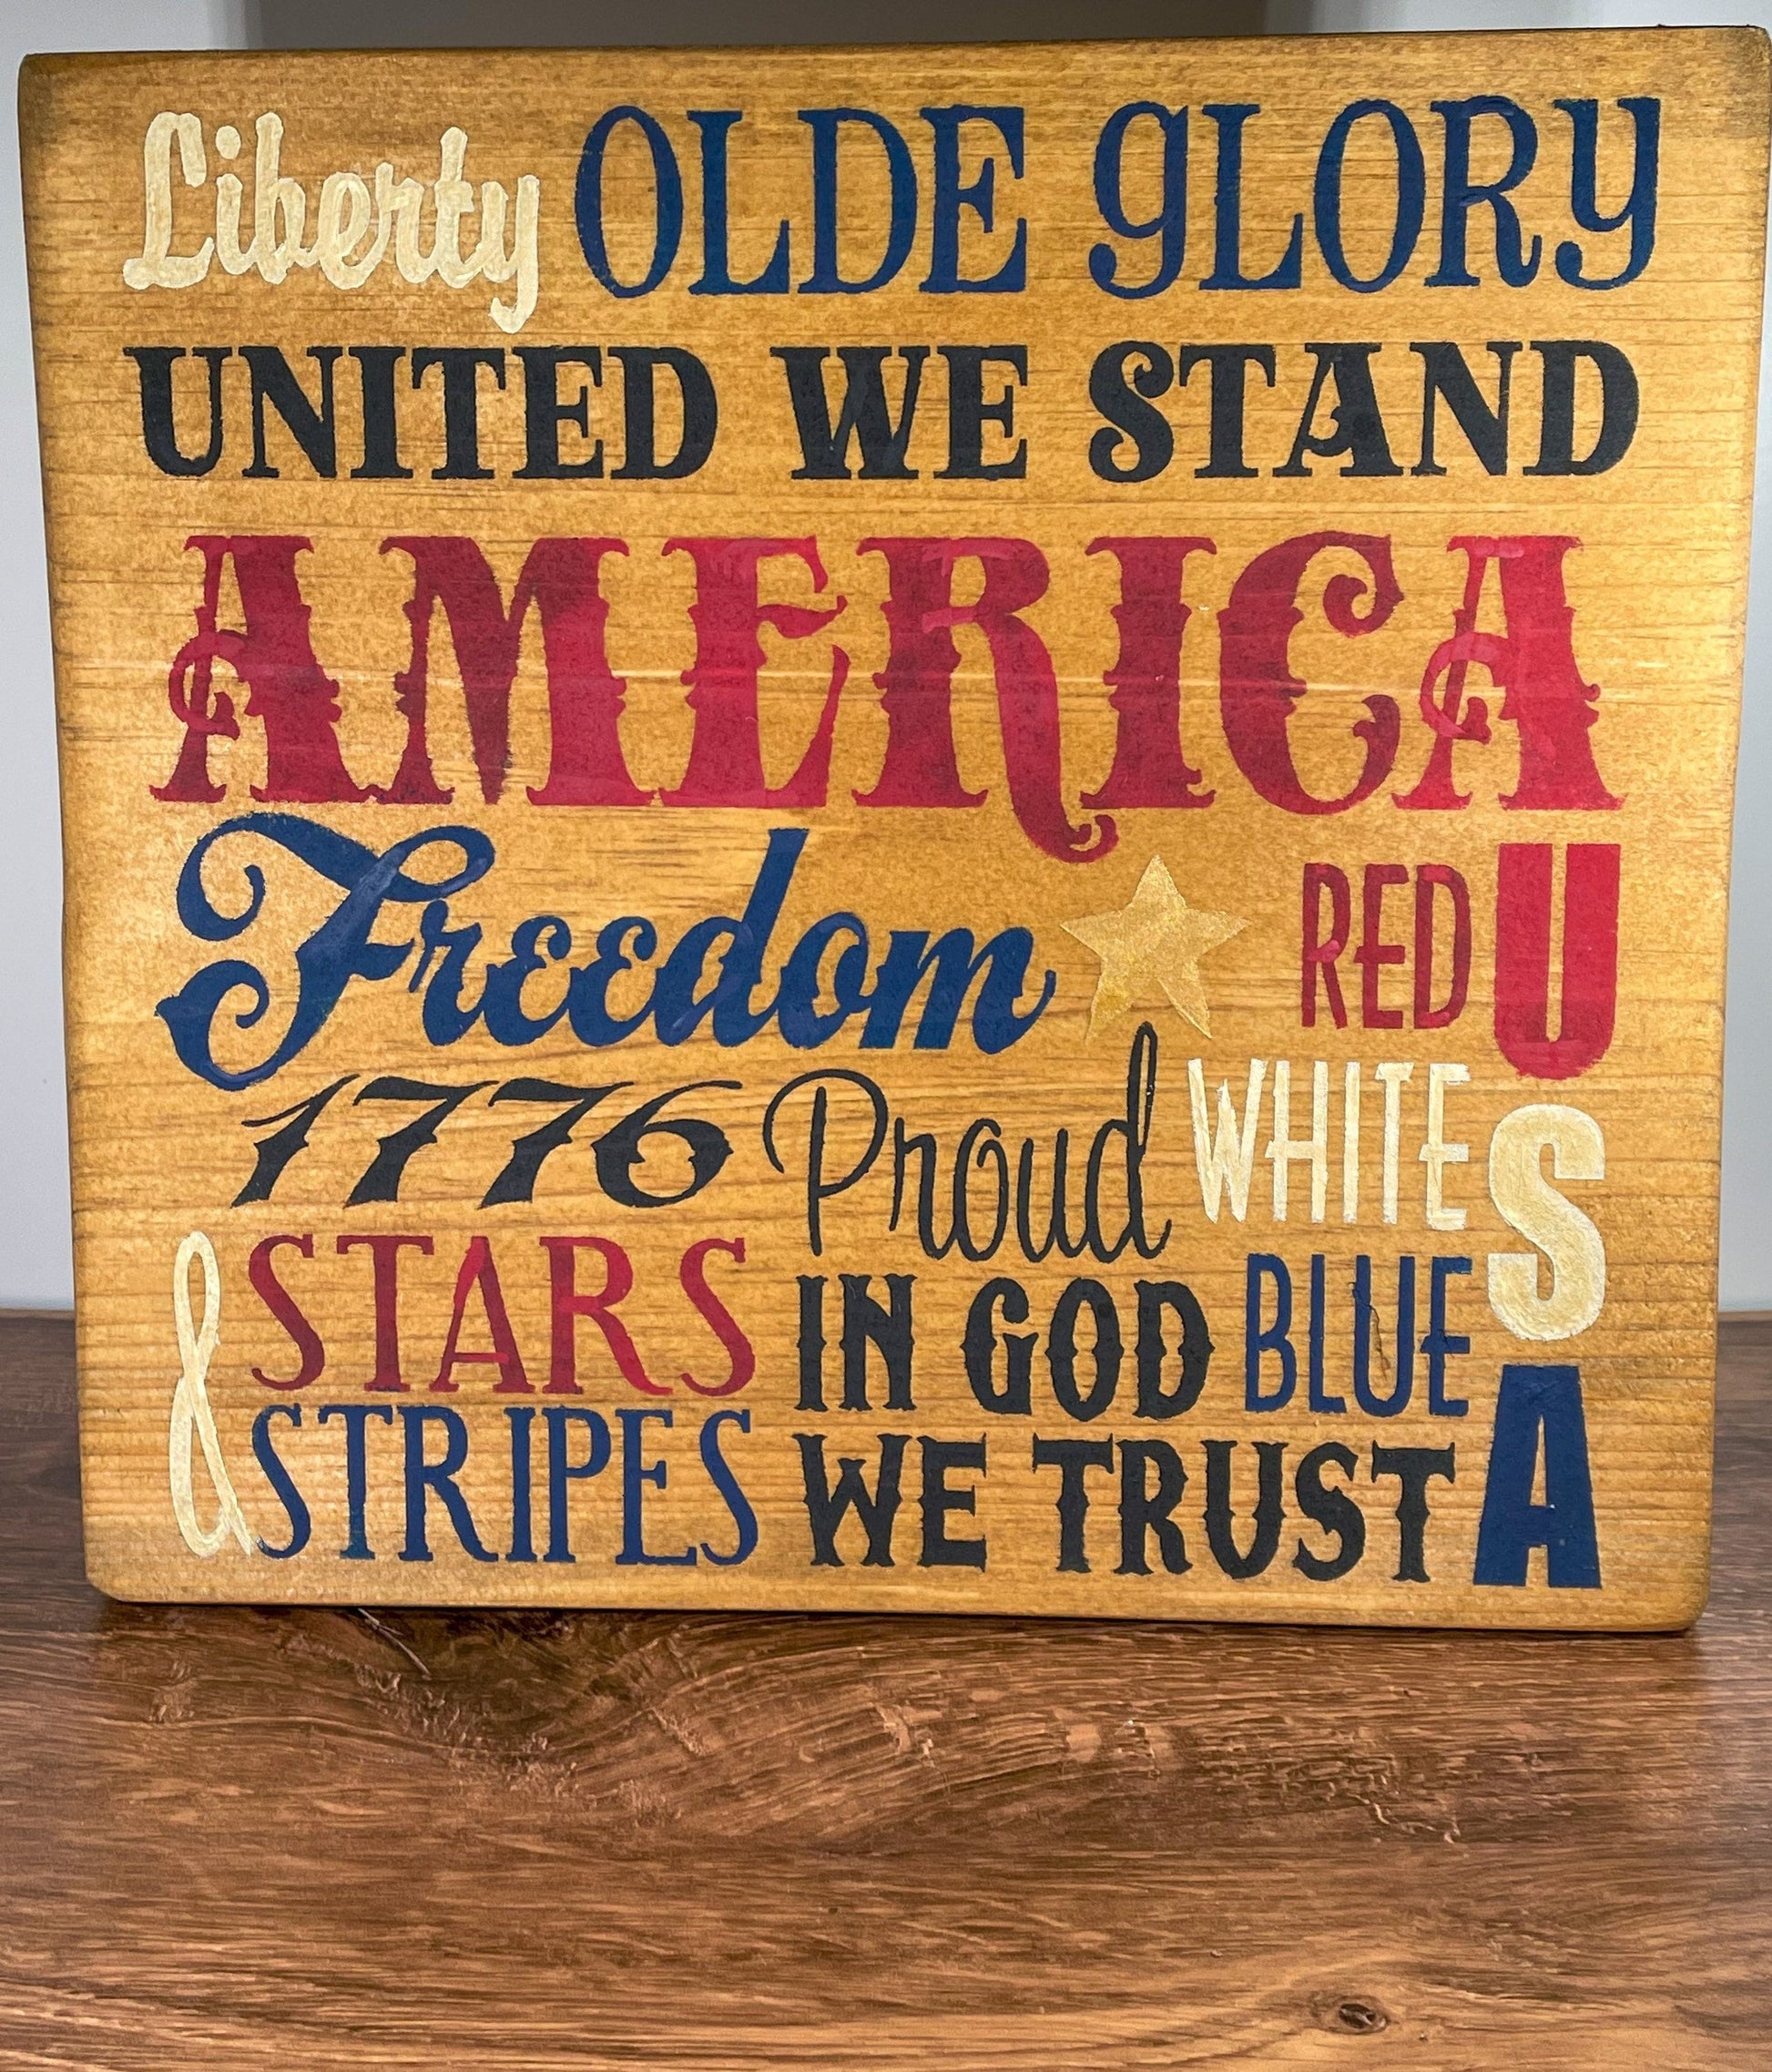 Liberty OLDE GLORY
UNITED WE STAND
AMERICA
Freedom RED
1776 Proud WHITE
& STARS
STRIPES
IN GOD BLUE
WE TRUST
USA